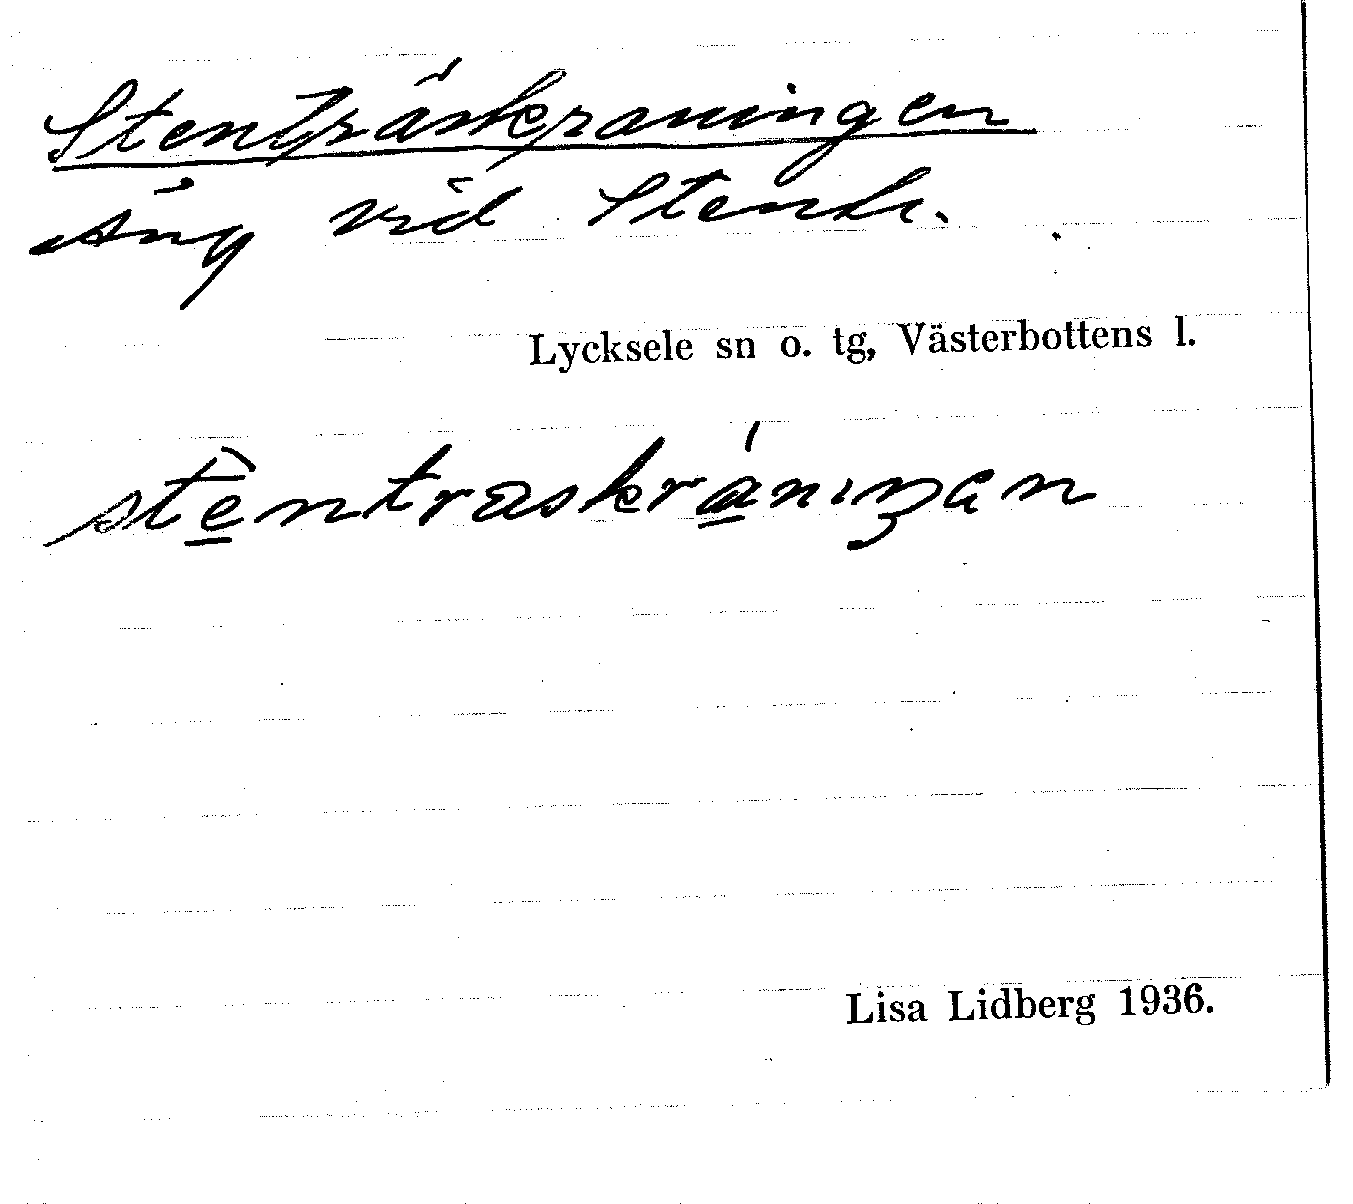 Stenträskraningen
Äng vid Stentr.
Lycksele sn o. tg, Västerbottens l.
stèntraskrániŋan
Lisa Lidberg 1936.